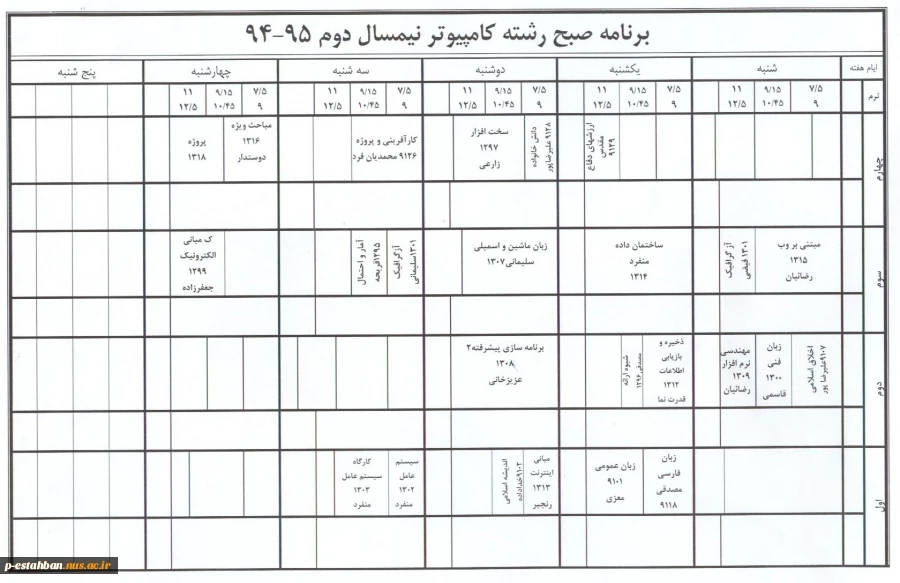 برنامه صبح رشته کامپیوتر نیمسال دوم ۹۵-۹۴
ایام هفته
شنبه
یکشنبه
دوشنبه
سه شنبه
چهارشنبه
پنج شنبه
ترم
۷/۵
۹
۹/۱۵
۱۰/۴۵
۱۱
۱۲/۵
۷/۵
۹
۹/۱۵
۱۰/۴۵
۱۱
۱۲/۵
۷/۵
۹
۹/۱۵
۱۰/۴۵
۱۱
۱۲/۵
۷/۵
۹
۹/۱۵
۱۰/۴۵
۱۱
۱۲/۵
۷/۵
۹
۹/۱۵
۱۰/۴۵
۱۱
۱۲/۵
چهارم
ارزشهای دفاع
مقدس
۹۱۲۹
دانش خانواده
۹۱۲۸ علیرضاپور
سخت افزار
۱۲۹۷
زارعی
کارآفرینی و پروژه
۹۱۲۶ محمدیان فرد
مباحث ویژه
۱۳۱۶
دوستدار
پروژه
۱۳۱۸
سوم
مبتنی بر وب
۱۳۱۵
رضائیان
آز گرافیک
۱۳۰۱ فیضی
ساختمان داده
منفرد
۱۳۱۴
زبان ماشین و اسمبلی
سلیمانی۱۳۰۷
آزگرافیک
۱۳۰۱سلیمانی
آمار و احتمال
۱۲۹۵فریحه
ک مبانی
الکترونیک
۱۲۹۹
جعفرزاده
دوم
اخلاق اسلامی
۹۱۰۷علیرضا
پور
زبان
فنی
۱۳۰۰
قاسمی
مهندسی
نرم افزار
۱۳۰۹
رضائیان
ذخیره و
بازیابی
اطلاعات
۱۳۱۲
قدرت نما
شیوه ارائه
مصدقی۱۲۹۶
برنامه سازی پیشرفته۲
۱۳۰۸
عزیزخانی
اول
زبان
فارسی
مصدقی
۹۱۱۸
زبان عمومی
۹۱۰۱
معزی
مبانی
اینترنت
۱۳۱۳
رنجبر
اندیشه اسلامی
۹۱۰۲خداداده
سیستم
عامل
۱۳۰۲
منفرد
کارگاه
سیستم عامل
۱۳۰۳
منفرد
p-estahban.nus.ac.ir